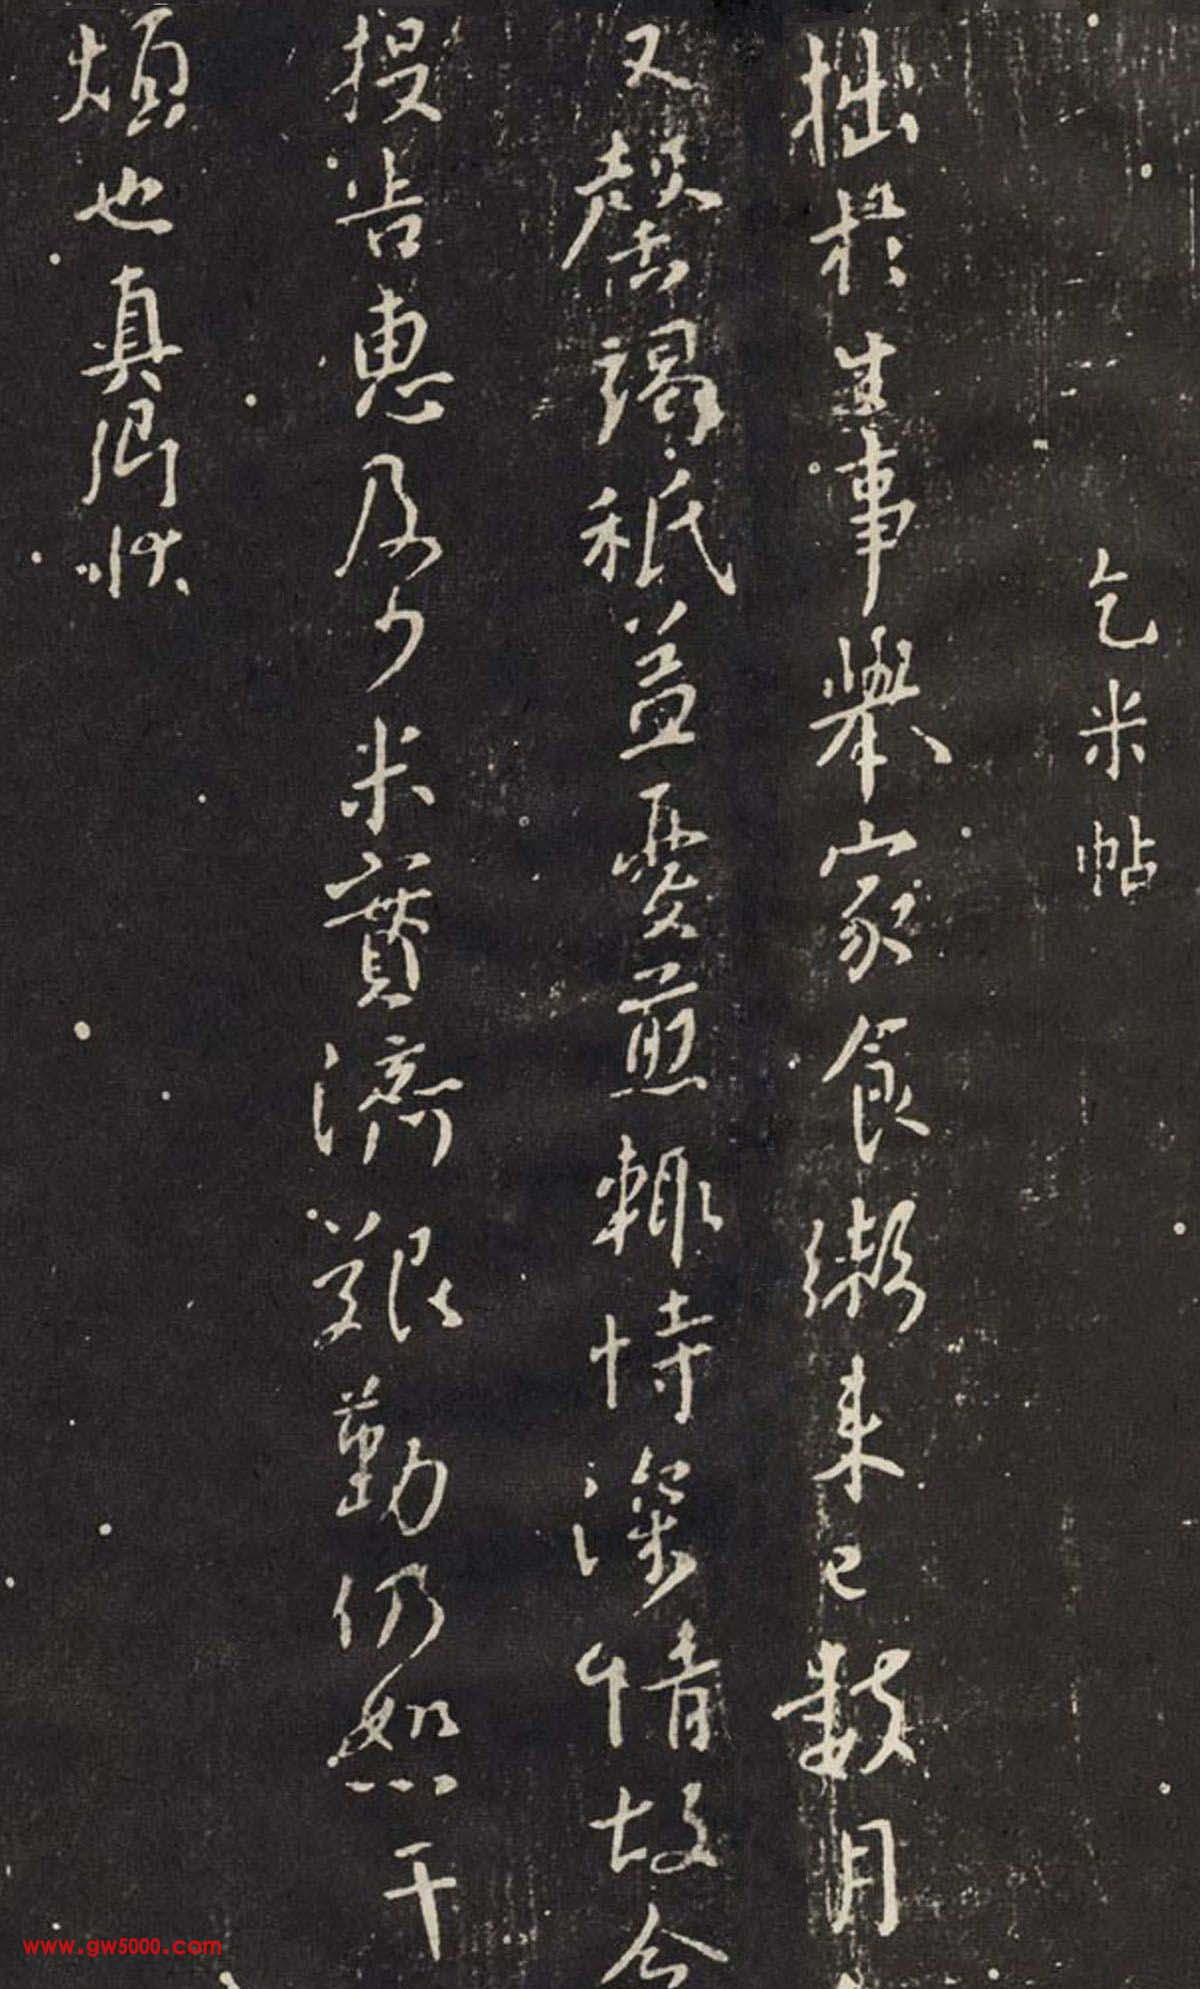 乞米帖
拙於生事舉家食粥来已數月
又罄竭秖益憂煎輙恃深情故令
投告惠及少米實濟艱勤仍恕干
煩也真卿狀
www.gw5000.com